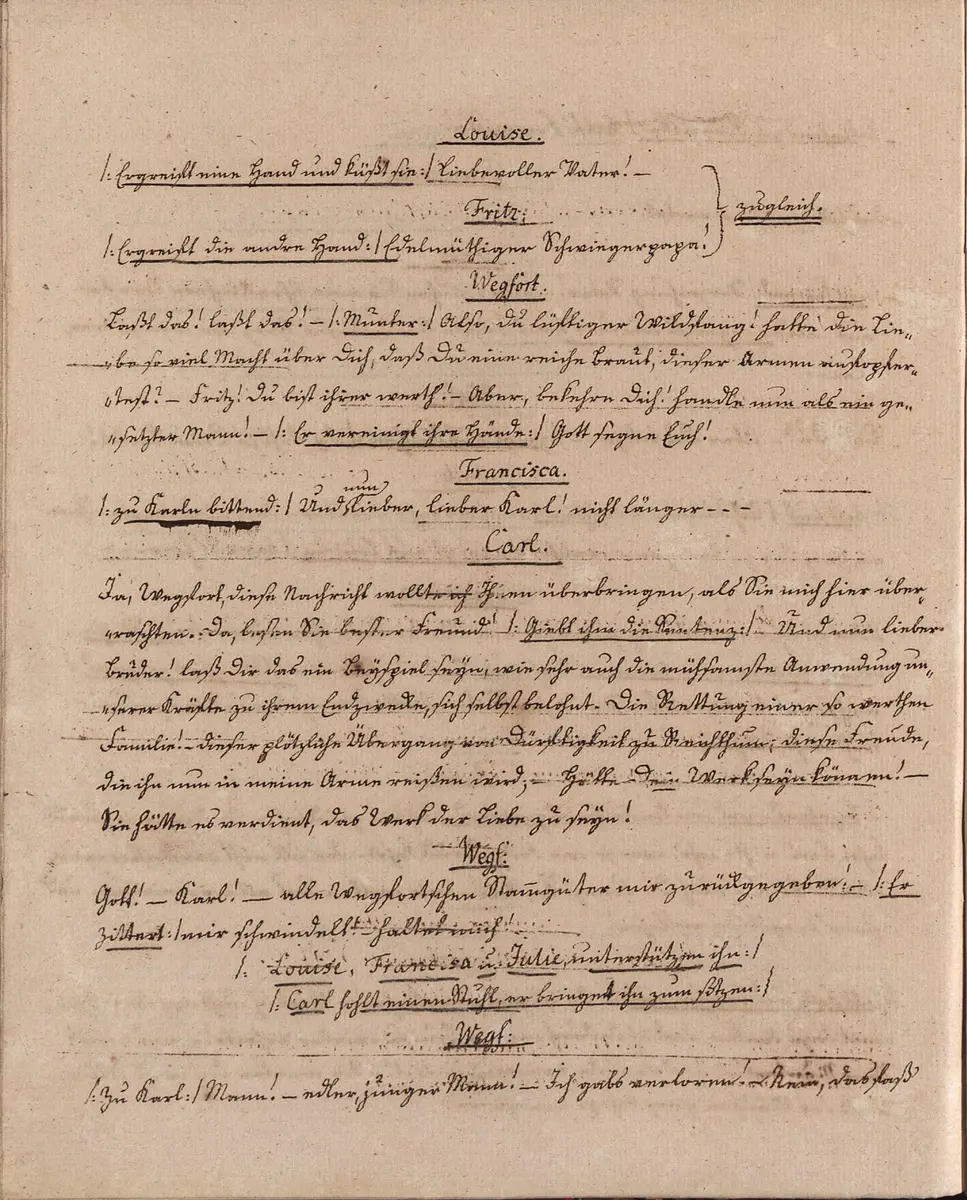 Louise.
/: Ergreift eine Hand und küßt sie :/ Liebevoller Vater! —
Fritz:
zugleich.
/: Ergreift die andre Hand :/ Edelmüthiger Schwiegerpapa!
Wegfort.
Laßt das! laßt das! — /: Munter :/ Also, du lüftiger Wildfang! hatte die Lie-
"be so viel Macht über Dich, daß Du eine reiche Braut, dieser Armen aufopfer-
"test? — Fritz! Du bist ihrer werth! — Aber, bekehre Dich! handle nun als ein ge-
"setzter Mann! — /: Er vereinigt ihre Hände :/ Gott segne Euch!
Francisca.
nun
/: zu Karln bittend :/ Und lieber, lieber Karl! nicht länger - - -
Carl.
Ja, Wegfort, diese Nachricht wollte ich Ihnen überbringen, als Sie mich hier über-
"raschten. Da, lesen Sie bester Freund! /: Giebt ihm die Sentenz :/ Und nun lieber
Bruder! laß Dir das ein Beyspiel seyn, wie sehr auch die mühsamste Anwendung un-
"serer Kräfte zu ihrem Endzwecke, sich selbst belohnt. Die Rettung einer so werthen
Familie! - dieser plötzliche Übergang von Dürftigkeit zu Reichthum; diese Freude,
die ihn nun in meine Arme reißen wird; — Hätte dein Werk seyn können! —
Sie hätte es verdient, das Werk der Liebe zu seyn!
Wegf:
Gott! — Karl! — alle Wegfortschen Stammgüter mir zurückgegeben! — /: Er
zittert :/ mir schwindelt! — haltet mich!
/: Louise, Francisca u. Julie, unterstützen ihn :/
/: Carl hohlt einen Stuhl, er bringet ihn zum sitzen :/
Wegf:
/: Zu Karl :/ Mann! — edler, junger Mann! — Ich gabs verloren! — Nein, das